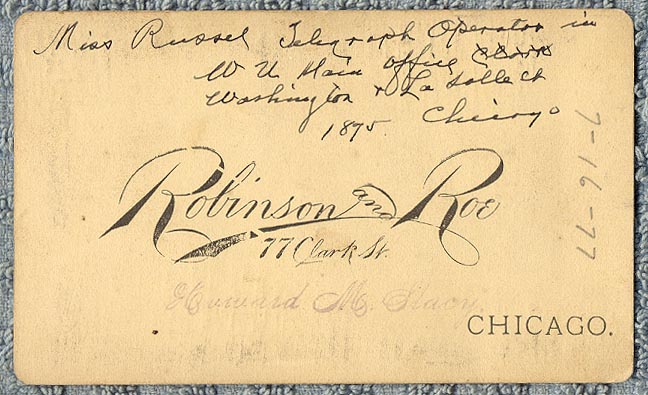 Miss Russel Telegraph Operator in
W U Main Office
Washington + La Salle St
1875. Chicago
Robinson and Roe
77 Clark St.
Howard M. Stacy.
CHICAGO.
7-16-77